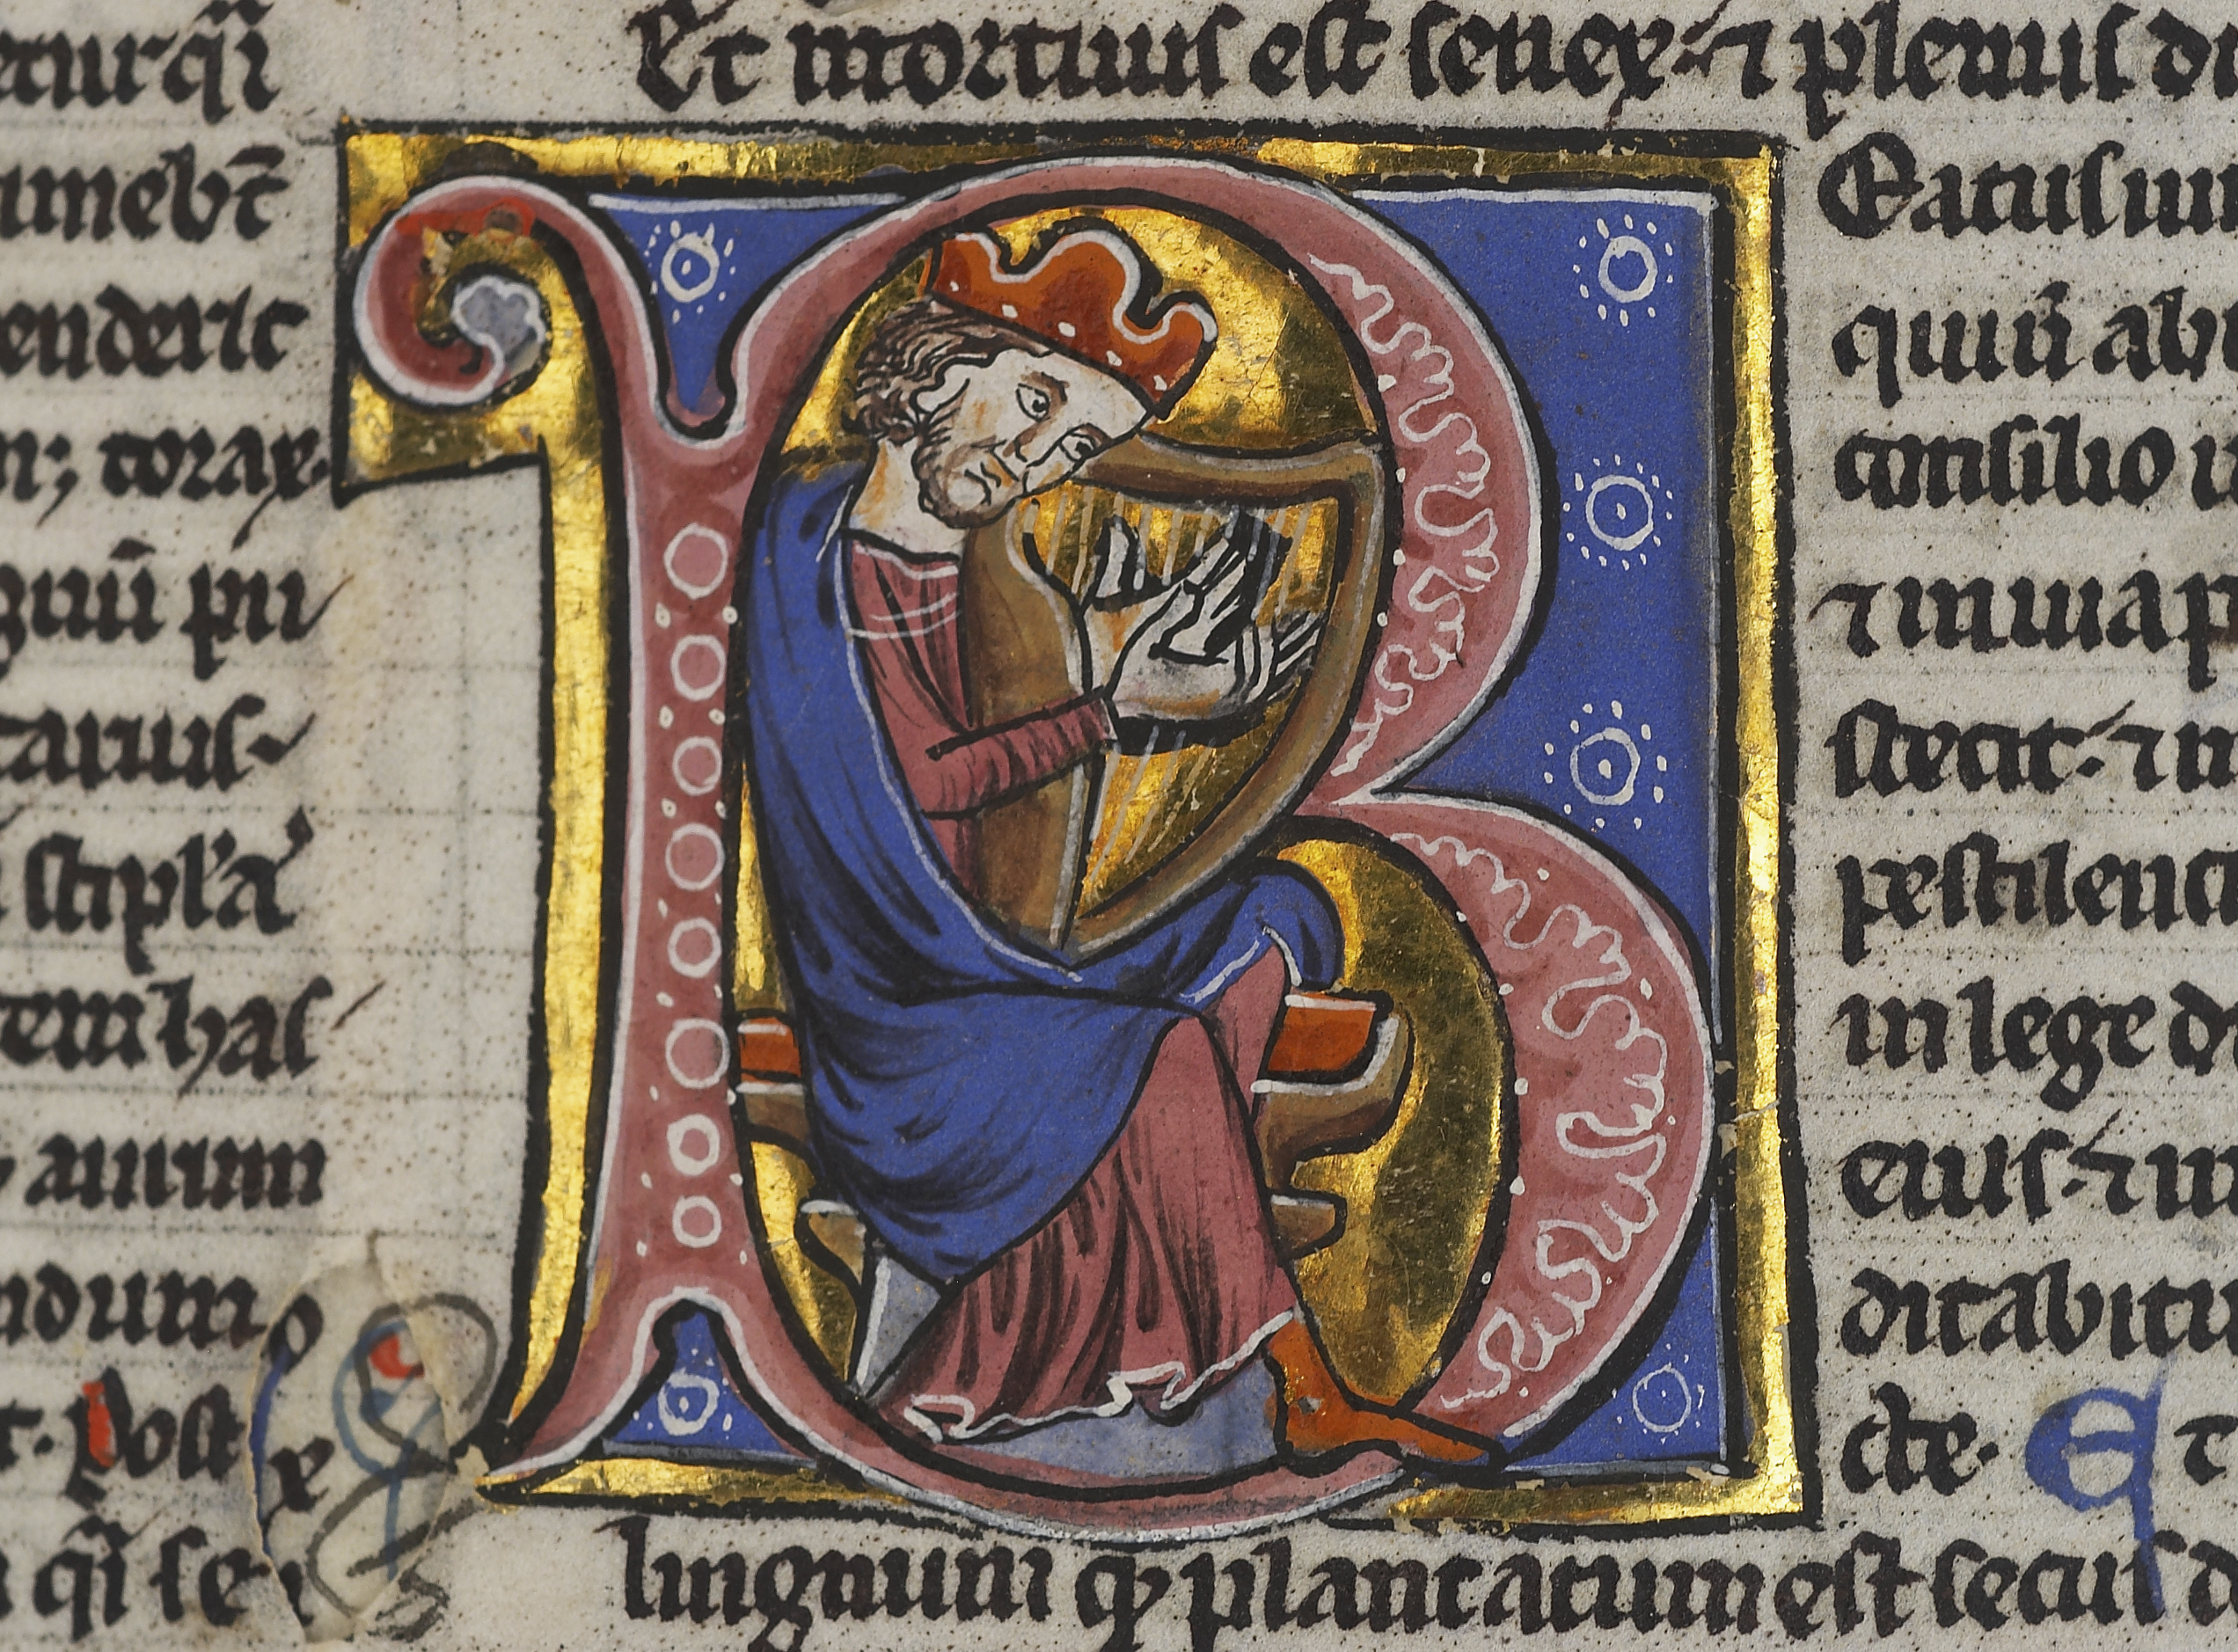 turqi
umebt
enderit
m; torax
gnū pu
tarius.
stipl'a
tem has
annum
ndum
t. Post
qi se
Et mortuus est senex. ⁊ plenus di
B
Eatus uir
qui nū abi
consilio i
⁊ in uia p
stetit. ⁊ in
pestilenti
in lege d
eius. ⁊ in
ditabitu
cte. E t
lingnum qd plantatum est secus d